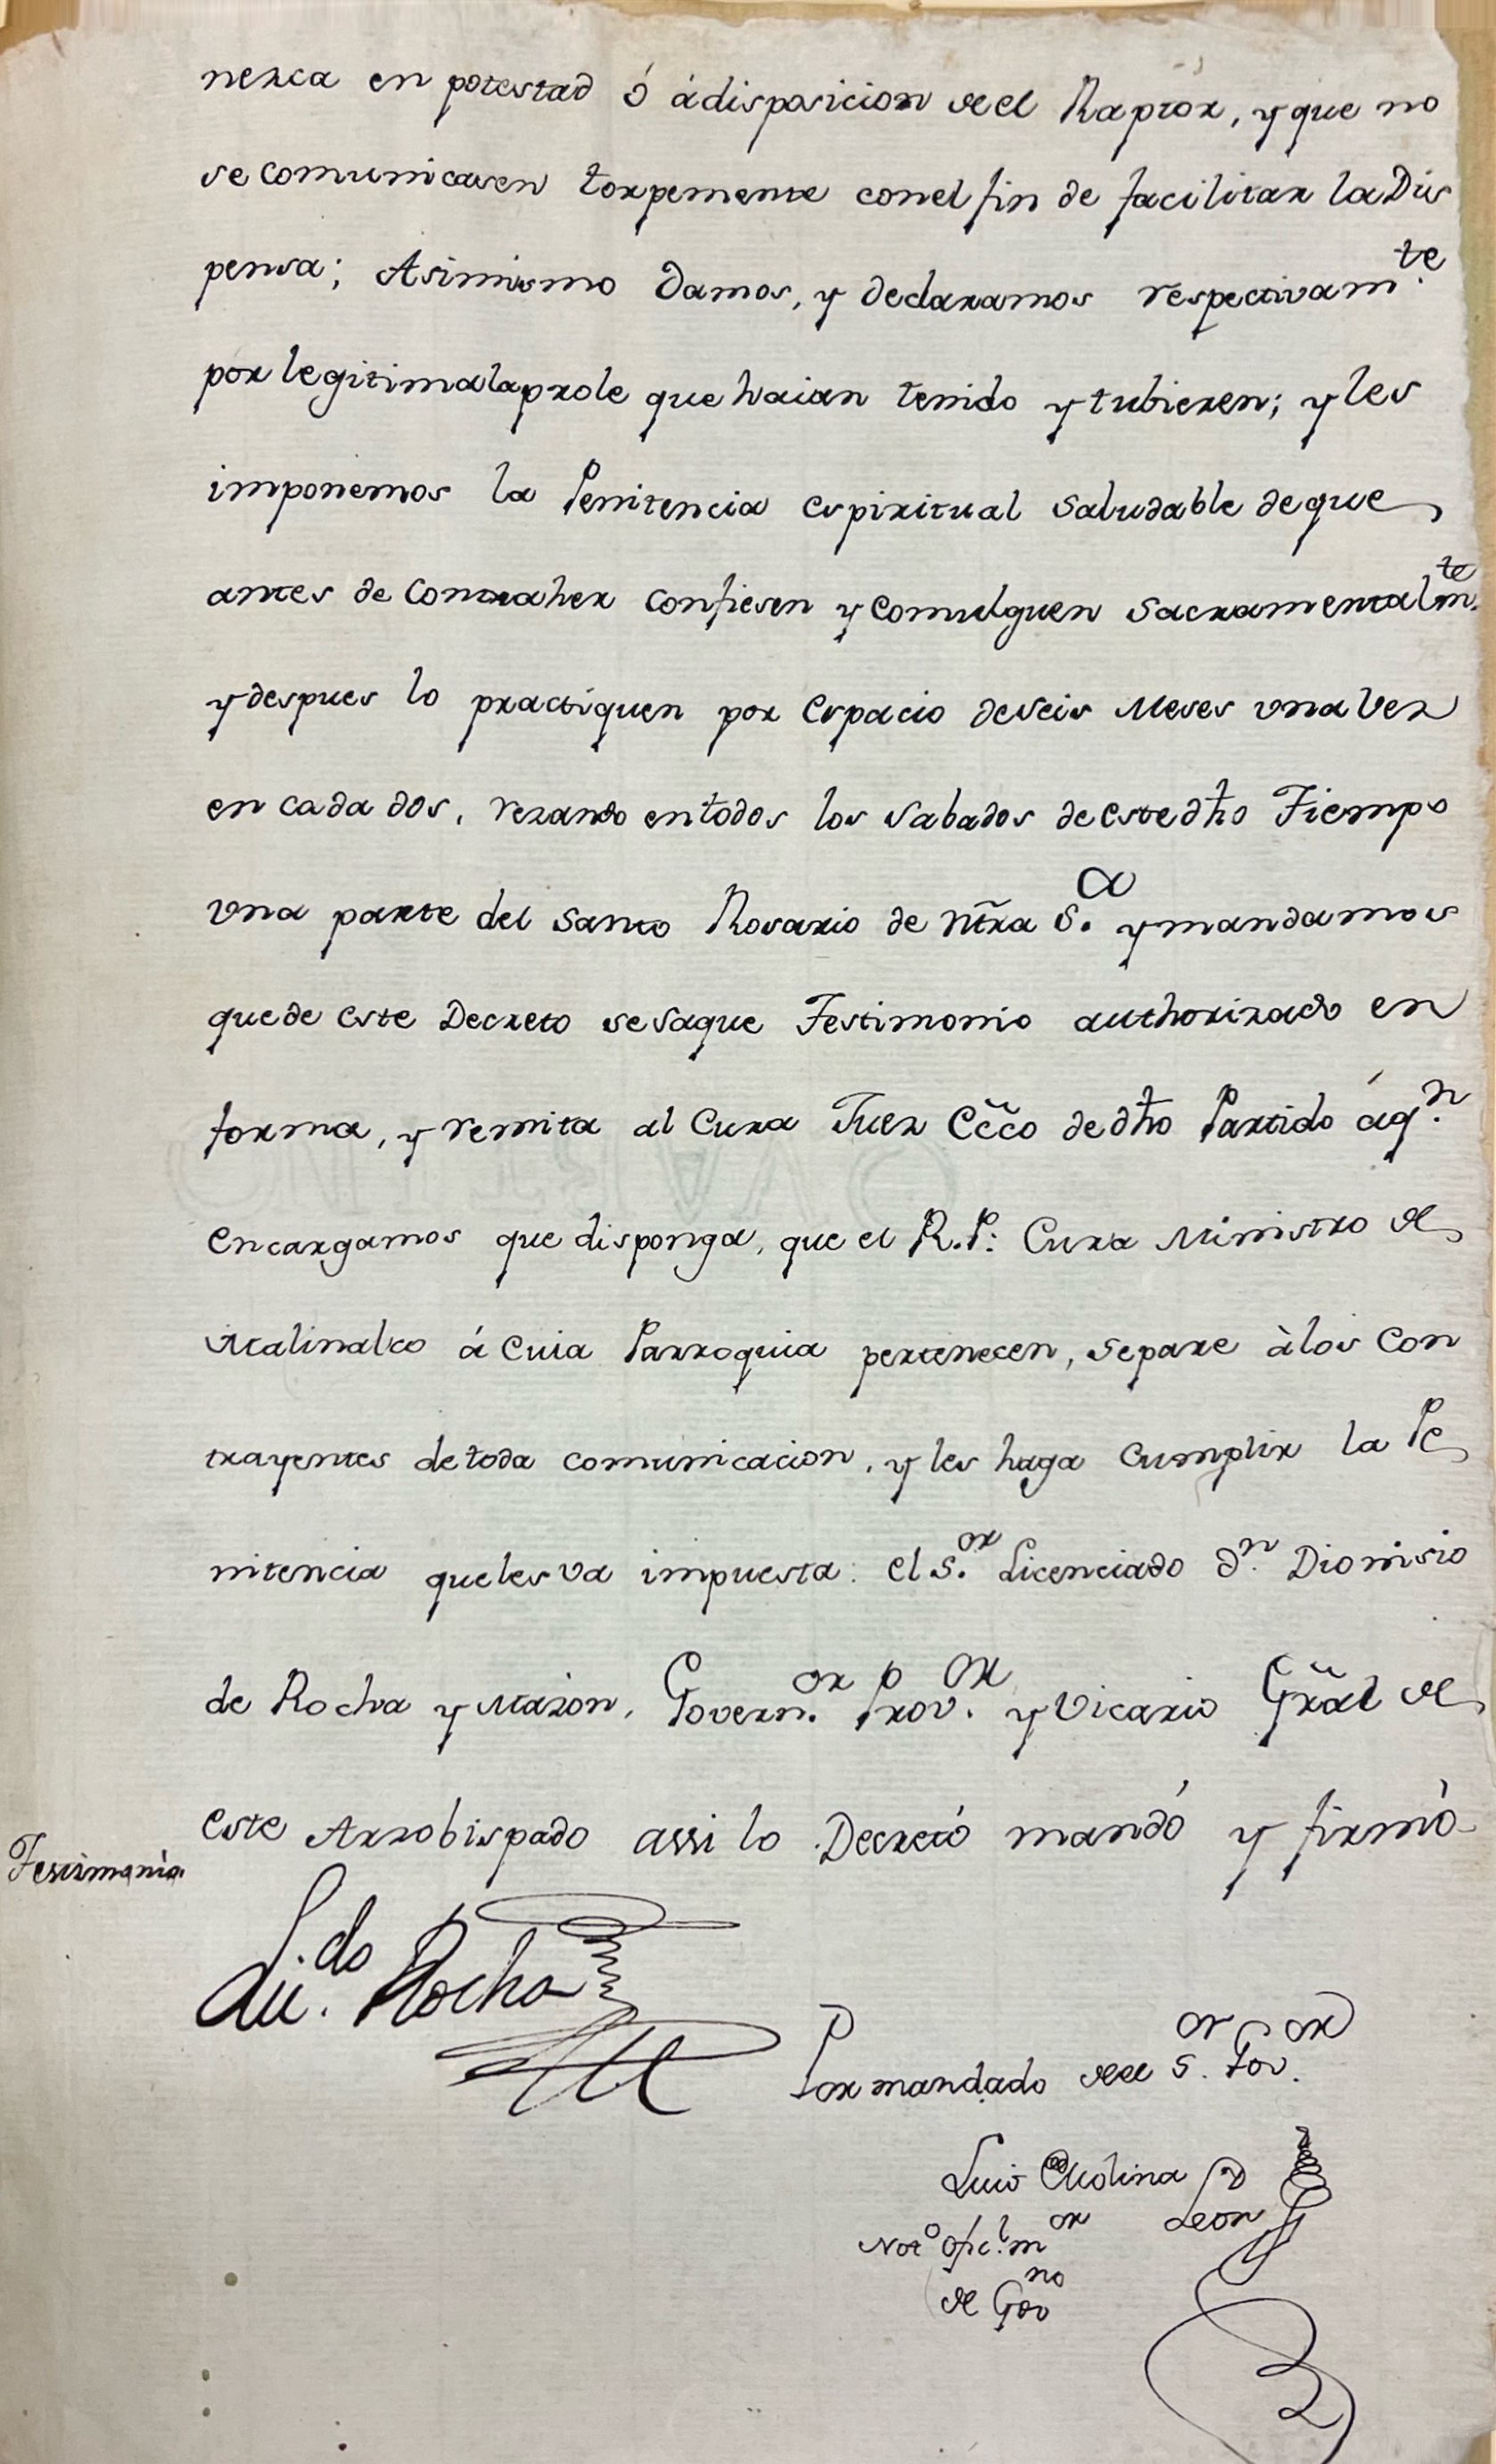 nezca en potestad ó á disposicion de el Raptor, y que no
se comunicasen torpemente con el fin de facilitar la Dis
pensa; Asimismo Damos, y declaramos respectivam.te
por legitima la prole que haian tenido y tubieren; y les
imponemos la Penitencia espiritual saludable de que
antes de contraher confiesen y comulguen sacramentalm.te
y despues lo practiquen por espacio de seis Meses una vez
en cada dos, rezando en todos los sabados de este dho Tiempo
una parte del santo Rosario de ntra S.a y mandamos
que de este Decreto se saque Testimonio authorizado en
forma, y remita al Cura Juez Ecco de dho Partido á q.n
encargamos que disponga, que el R. P: Cura Ministro de
Malinalco á cuia Parroquia pertenecen, separe à los Con
trayentes de toda comunicacion, y les haga cumplir la Pe
nitencia que les va impuesta: el S.or Licenciado D.n Dionisio
de Rocha y Mazon, Govern.or Prov.or y Vicario Gral de
este Arzobispado assi lo Decretó mandó y firmó
Testimonio.
Lic.do Rocha
Por mandado de el S.or Gov.or
Luis Molina
Leon
Not.o ofic.l m.or
de Gov.no
QVARTILLO